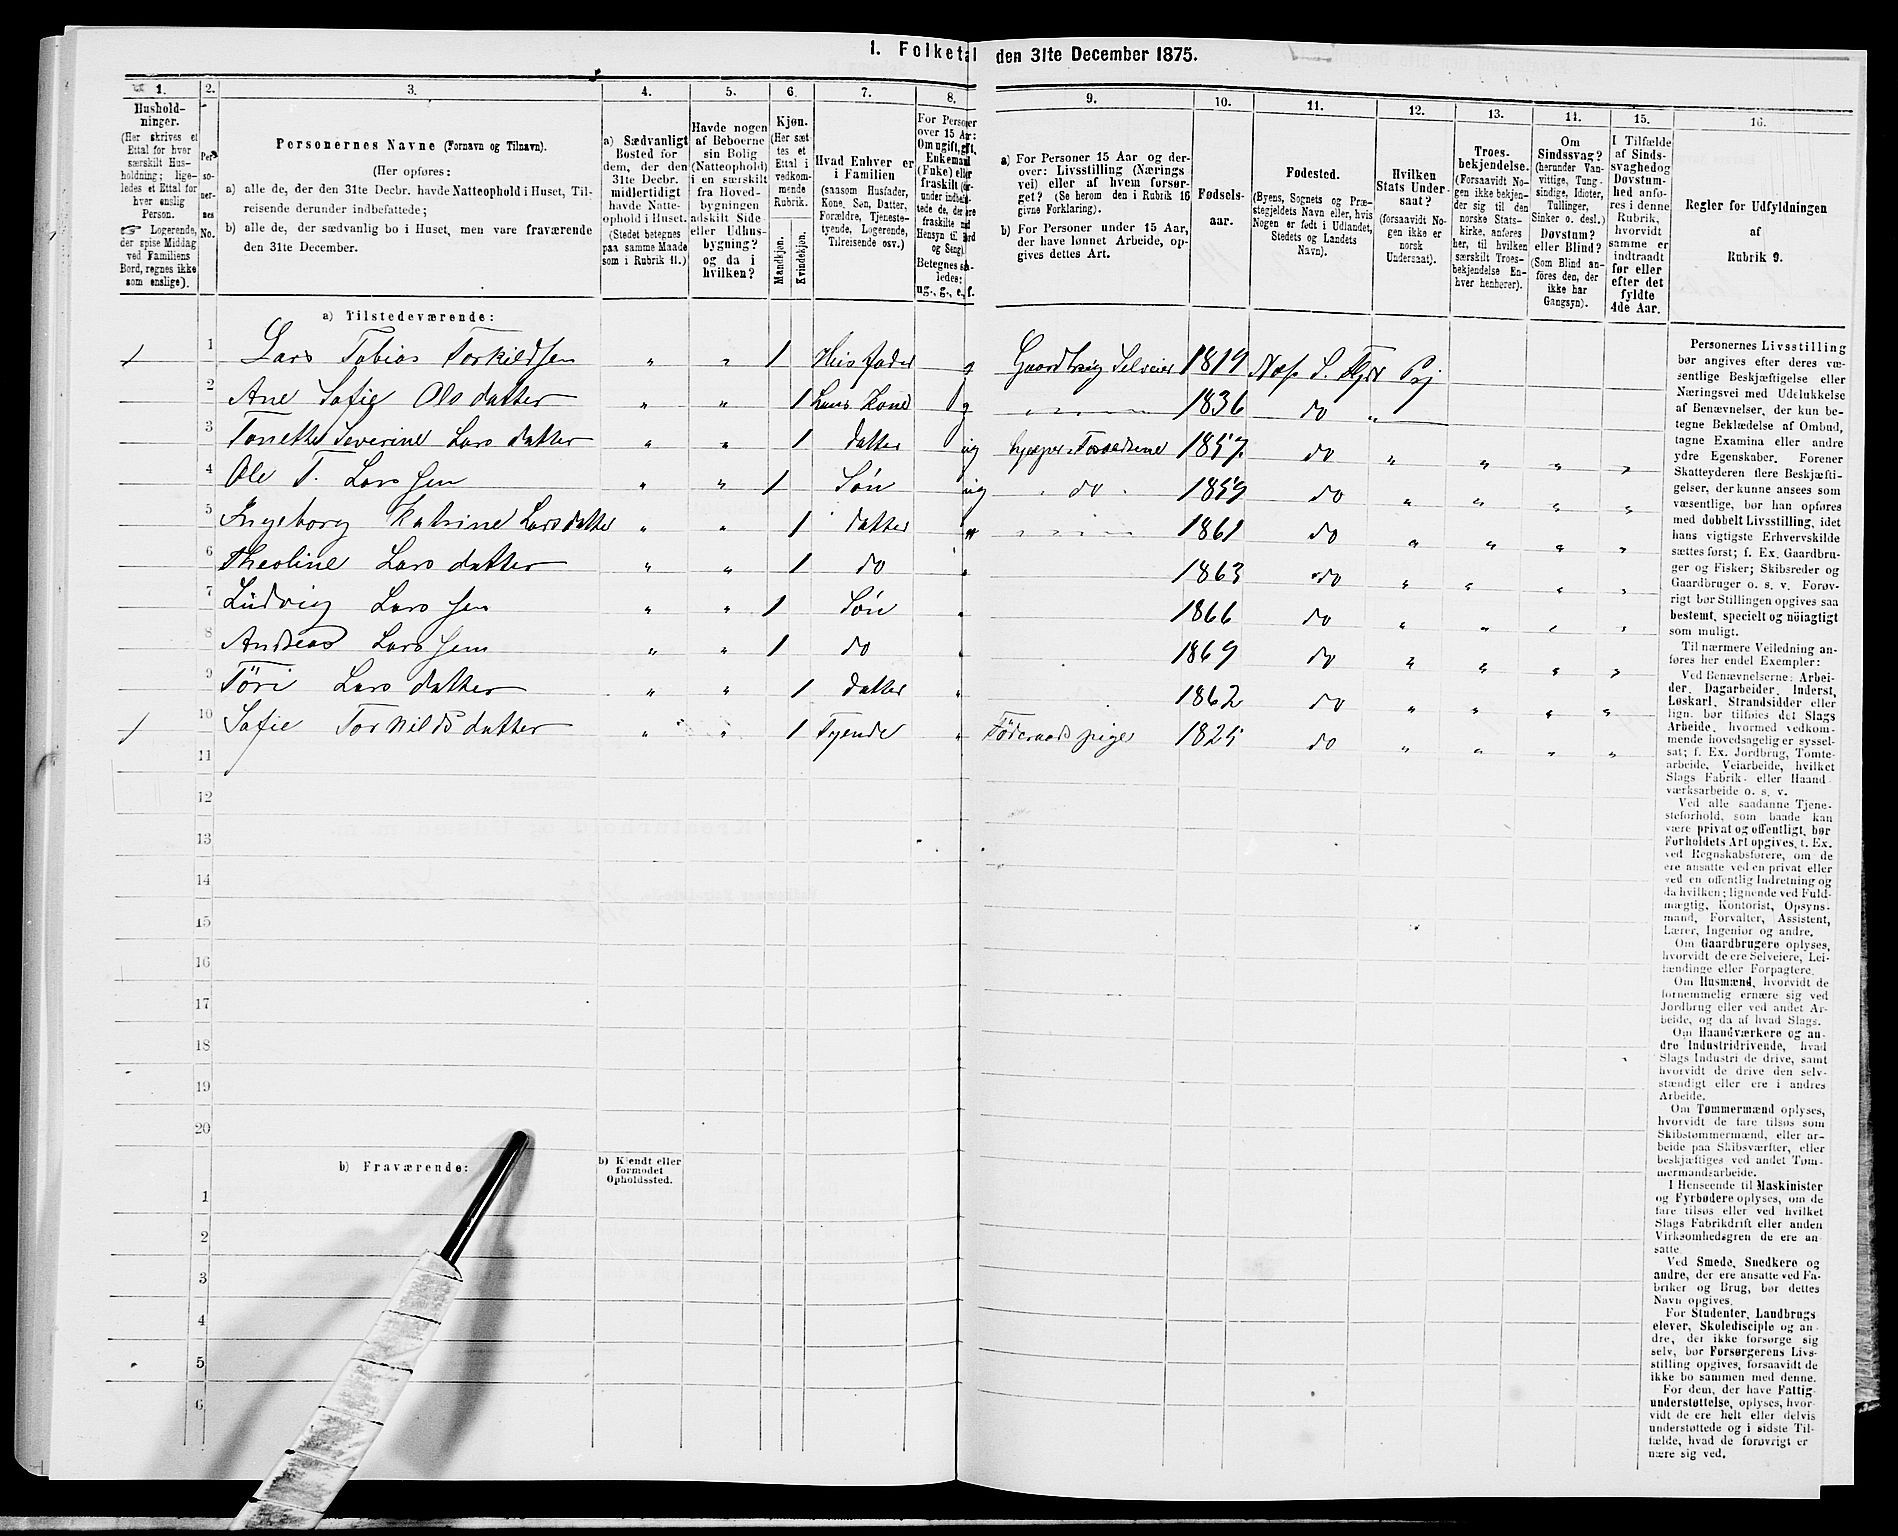 1. Folketal den 31te December 1875.
1.
Hushold-
ninger.
(Her skrives et
Ettal for hver
særskilt Hus-
holdning; lige-
ledes et Ettal for
hver enslig
Person.
☞ Logerende,
der spise Middag
ved Familiens
Bord, regnes ikke
som enslige).
2.
Per-
so-
ner-
nes
No.
3.
Personernes Navne (Fornavn og Tilnavn).
(Her opføres:
a) alle de, der den 31te Decbr. havde Natteophold i Huset, Til-
reisende derunder indbefattede;
b) alle de, der sædvanlig bo i Huset, men vare fraværende
den 31te December.
4.
a) Sædvanligt
Bosted for
dem, der den
31te Decbr.
midlertidigt
havde Natte-
ophold i Huset.
(Stedet betegnes
paa samme Maade
som i Rubrik 11.)
5.
Havde nogen
af Beboerne
sin Bolig
(Natteophold)
i en særskilt
fra Hoved-
bygningen
adskilt Side
eller Udhus-
bygning?
og da i
hvilken?
6.
Kjøn.
(Her sæt
tes et
Ettal i
vedkom-
mende
Rubrik.
Mandkjøn.
Kvindekjøn.
7.
Hvad Enhver er
i Familien
(saasom Husfader,
Kone, Søn, Datter,
Forældre, Tjeneste-
tyende, Logerende,
Tilreisende osv.)
8.
For Personer
over 15 Aar:
Om ugift, gift,
Enkemand
(Enke) eller
fraskilt (der-
under indbefat-
tede de, der ere
fraskilte med
Hensyn til Bord
og Seng).
Betegnes saa-
ledes:
ug., g., e., f.
9.
a) For Personer 15 Aar og der-
over: Livsstilling (Nærings
vei) eller af hvem forsør-
get? (Se herom den i Rubrik 16
givne Forklaring).
b) For Personer under 15 Aar,
der have lønnet Arbeide, op-
gives dettes Art.
10.
Fødsels-
aar.
11.
Fødested.
(Byens, Sognets og Præ-
stegjeldets Navn eller, hvis
Nogen er født i Udlandet,
Stedets og Landets
Navn).
12.
Hvilken
Stats Under-
saat?
(forsaavidt No-
gen ikke er
norsk
Undersaat).
13.
Troes-
bekjendelse.
(Forsaavidt No-
gen ikke bekjen-
der sig til den
norske Stats-
kirke, anføres
her, til hvilken
særskilt Troes-
bekjendelse En-
hver henhører).
14.
Om
Sindssvag?
(herunder Van-
vittige, Tung-
sindige, Idioter,
Tullinger,
Sinker o. desl.)
Døvstum?
eller Blind?
(Som Blind an-
føres den, der
ikke har
Gangsyn).
15.
I Tilfælde
af Sinds-
svaghed og
Døvstum-
hed anfø-
res i denne
Rubrik,
hvorvidt
samme er
indtraadt
før eller
efter det
fyldte
4de Aar.
16.
Regler for Udfyldningen
af
Rubrik 9.
a) Tilstedeværende:
1 1 Lars Tobias Torkildsen " " 1 Husfader g Gaardbrug Selveier 1819 Næs S. Fjr Prj
2 Ane Sofie Olsdatter " " 1 hans Kone g " 1836 do "
3 Tonette Severine Larsdatter " " 1 datter ug hjælper Forældrene 1857 do " " " "
4 Ole T. Larssen " " 1 Søn ug " do " 1859 do " " " "
5 Ingeborg Katrine Larsdatter " " 1 datter " " 1861 do " " " "
6 Theoline Larsdatter " " 1 do " 1863 do " " " "
7 Ludvig Larssen " " 1 Søn " 1866 do " " " "
8 Andreas Larssen " " 1 do " 1869 do " " " "
9 Töri Larsdatter " " 1 datter " 1862 do " " " "
1 10 Sofie Torkildsdatter " " 1 Tyende " Föderaads pige 1825 do " " " "
11
12
13
14
15
16
17
18
19
20
b) Fraværende:
b) Kjendt eller
formodet
Opholdssted.
1
2
3
4
5
6
Personernes Livsstilling
bør angives efter deres væ-
sentlige Beskjæftigelse eller
Næringsvei med Udelukkelse
af Benævnelser, der kun be-
tegne Beklædelse af Ombud,
tagne Examina eller andre
ydre Egenskaber. Forener
Skatteyderen flere Beskjæfti-
gelser, der kunne ansees som
væsentlige, bør han opføres
med dobbelt Livsstilling, idet
hans vigtigste Erhvervskilde
sættes først; f. Ex. Gaardbru-
ger og Fisker; Skibsreder og
Gaardbruger o. s. v. Forøv-
rigt bør Stillingen opgives saa
bestemt, specielt og nöiagtigt
som muligt.
Til nærmere Veiledning an-
føres her endel Exempler:
Ved Benævnelserne: Arbei-
der, Dagarbeider, Inderst,
Løskarl, Strandsidder eller
lign. bør tilføies det Slags
Arbeide, hvormed vedkom-
mende hovedsagelig er syssel-
sat; f. Ex. Jordbrug, Tomte-
arbeide, Veiarbeide, hvilket
Slags Fabrik- eller Haand-
værksarbeide o. s. v.
Ved alle saadanne Tjene-
steforhold, som baade kan
være privat og offentligt, bør
Forholdets Art opgives, f. Ex.
ved Regnskabsførere, om de
ere ansatte ved en privat eller
ved en offentlig Indretning og
da hvilken; lignende ved Fuld-
mægtig, Kontorist, Opsyns-
mand, Forvalter, Assistent,
Lærer, Ingeniør og andre.
Om Gaardbrugere oplyses,
hvorvidt de ere Selveiere, Lei-
lændinge eller Forpagtere.
Om Husmænd, hvorvidt de
fornemmelig ernære sig ved
Jordbrug eller ved andet Ar-
beide, og da af hvad Slags.
Om Haandværkere og an-
dre Industridrivende, hvad
Slags Industri de drive, samt
hvorvidt de drive den selv-
stændigt eller ere i andres
Arbeide.
Om Tømmermænd oplyses,
hvorvidt de fare tilsøs som
Skibstømmermænd, eller ar-
beide paa Skibsværfter, eller
beskjæftiges ved andet Tøm-
mermandsarbeide.
I Henseende til Maskinister
og Fyrbødere oplyses, om de
fare tilsøs eller ved hvilket
Slags Fabrikdrift eller anden
Virksomhedsgren de ere an-
satte.
Ved Smede, Snedkere og
andre, der ere ansatte ved Fa-
briker og Brug, bør dettes
Navn opgives.
For Studenter, Landbrugs
elever, Skoledisciple og an-
dre, der ikke forsørge sig
selv, bør Forsørgerens Livs-
stilling opgives, forsaavidt de
ikke bo sammen med denne.
For dem, der have Fattig-
understøttelse, oplyses, hvor-
vidt de ere helt eller delvis
understøttede og i sidste Til-
fælde, hvad de forøvrigt er
nære sig ved.